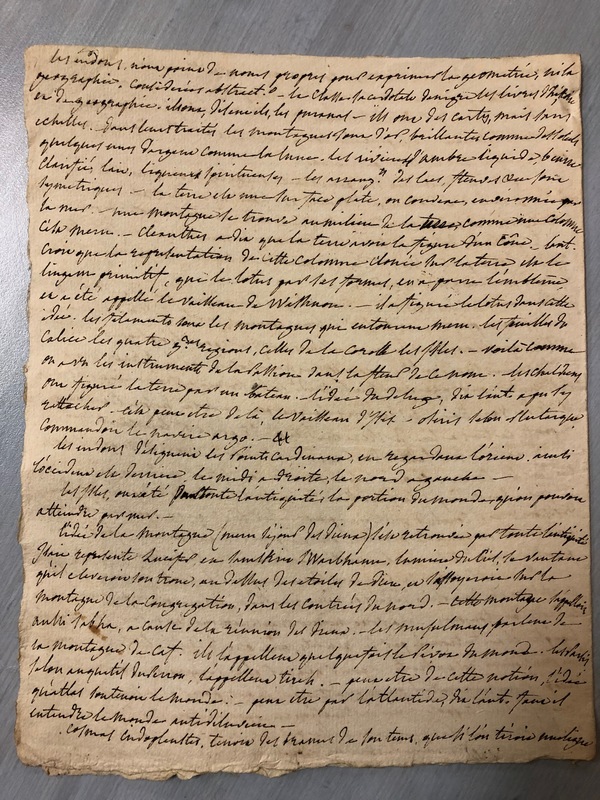 les indous, n'ont point de noms propres pour exprimer la geometrie, ni la
geographie. considerées abstract.t - la classe sacerdotale denigre les livres d'histoire
et de geographie. les puranas - ils ont des cartes, mais sans
echelles. dans leurs traités, les montagnes sont d'or brillantes comme des soleils
quelques unes d'argent comme la lune. les rivieres d'ambre liquide, beurre
clarifié, lait, liqueurs spiritueuses - les des lacs, fleuves &ca sont
symetriques - la terre est une surface plate, ou convexe, environnée par
la mer. - une montagne se trouve au milieu de la comme une colonne
c'est meru. - cleanthes a dit que la terre avoit la figure d'un cône.
croit que la representation de cette colonne clouée sur la terre est le
lingam primitif, que le lotus par ses formes, en a parru l'embleme
et a été appellé le vaisseau de Wishnou. - il a figuré le lotus dans cette
idée. les filaments sont les montagnes qui entourent meru. les feuilles du
calice les quatre g.des regions, celles de la corolle les isles. - voilà comme
on a vu les instruments de la Passion dans la fleur de ce nom. les chaldéens
ont figuré la terre par un bateau. - l'idée du deluge, dit l'aut. a pu les
rattacher - c'est peut etre de là, le vaisseau d'Isis - osiris selon plutarque
commandoit le navire argo. -
les indous designent les points cardinaux, en regardant l'orient, ainsi
l'occident est derriere le midi a droite, le nord a gauche -
les isles, ont été dans toute l'antiquité la portion du monde, qu'on pouvoit
attendre par mer. -
l'idée de la montagne (meru sejour des dieux) s'est retrouvée par toute l'antiquité
Isaie represente Lucifer en lumiere du Ciel, se vantant
qu'il eleveroit son trone, au dessus des etoiles de dieu, et s'assoyeroit sur la
montagne de la congregation, dans les contrées du nord. - cette montagne s'appelle
aussi sabha, a cause de la réunion des dieux. - les musulmans parlent de
la montagne de Caf. ils l'appellent quelquefois le Pivot du monde.
selon anquetil du Perron, l'appellent tireh. - peut etre de cette notion, l'idée
qu'atlas soutenoit le monde. - peut etre par l'atlantide, dit l'aut. faut il
entendre le monde antediluvien -
cosmas indopleustes, tenoit des brames de son tems, que si l'on tenoit une ligne